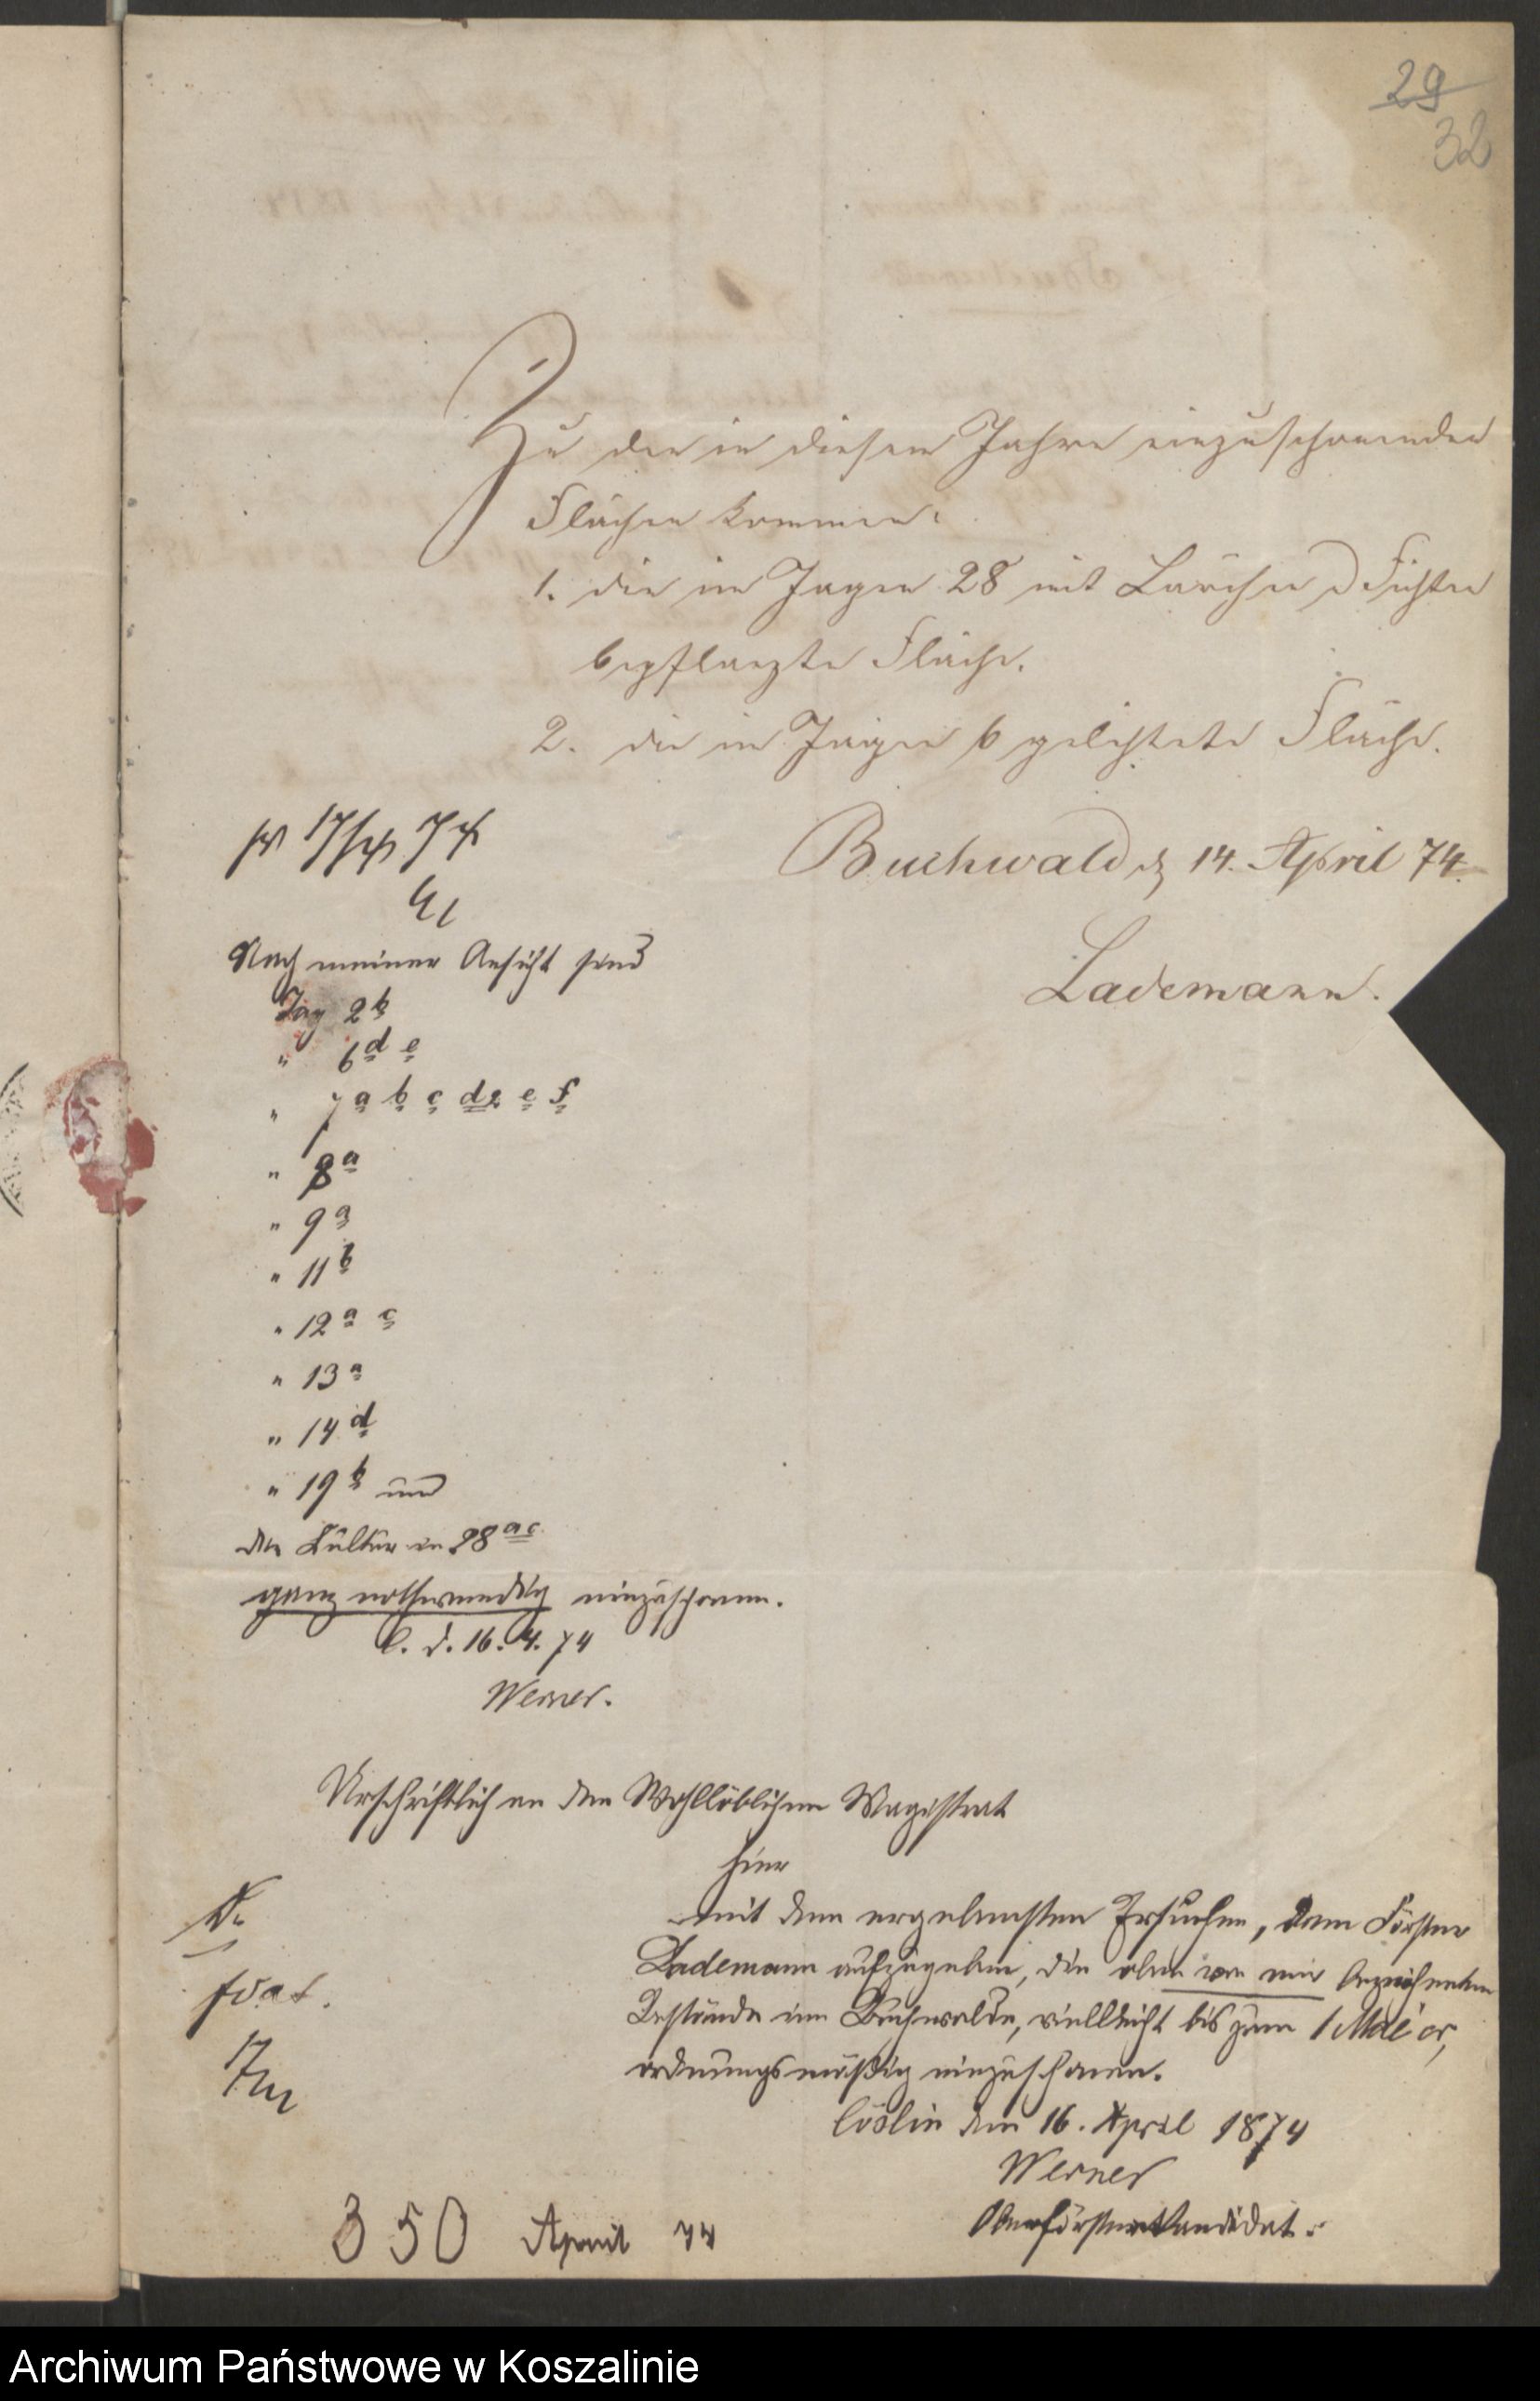 29
32
Zu den in diesem Jahre einzuschonenden
Flächen kommen:
1. die im Jagen 28 mit Lärchen & Fichten
bepflanzte Fläche.
2. die im Jagen 6 gelichtete Fläche.
Buchwald d 14. April 74.
Lademann.
pr 17/4 74
Nach meiner Ansicht sind
Jag 2 b
" 6 d e
" 7 a b c d 2 e f
" 8 a
" 9 a
" 11 b
" 12 a c
" 13 a
" 14 d
" 19 b und
die Kultur in 28 a c
ganz nothwendig einzuschonen.
C. d. 16. 4. 74
Werner.
Urschriftlich an den Wohllöblichen Magistrat
hier
mit dem ergebensten Ersuchen, dem Förster
Lademann aufzugeben, die oben von mir bezeichneten
Bestände im Buchwalde, vielleicht bis zum 1 Mai cr,
ordnungsmäßig einzuschonen.
Cöslin den 16. April 1874
Werner
Oberförsterkandidat.
350 April 74
Archiwum Państwowe w Koszalinie